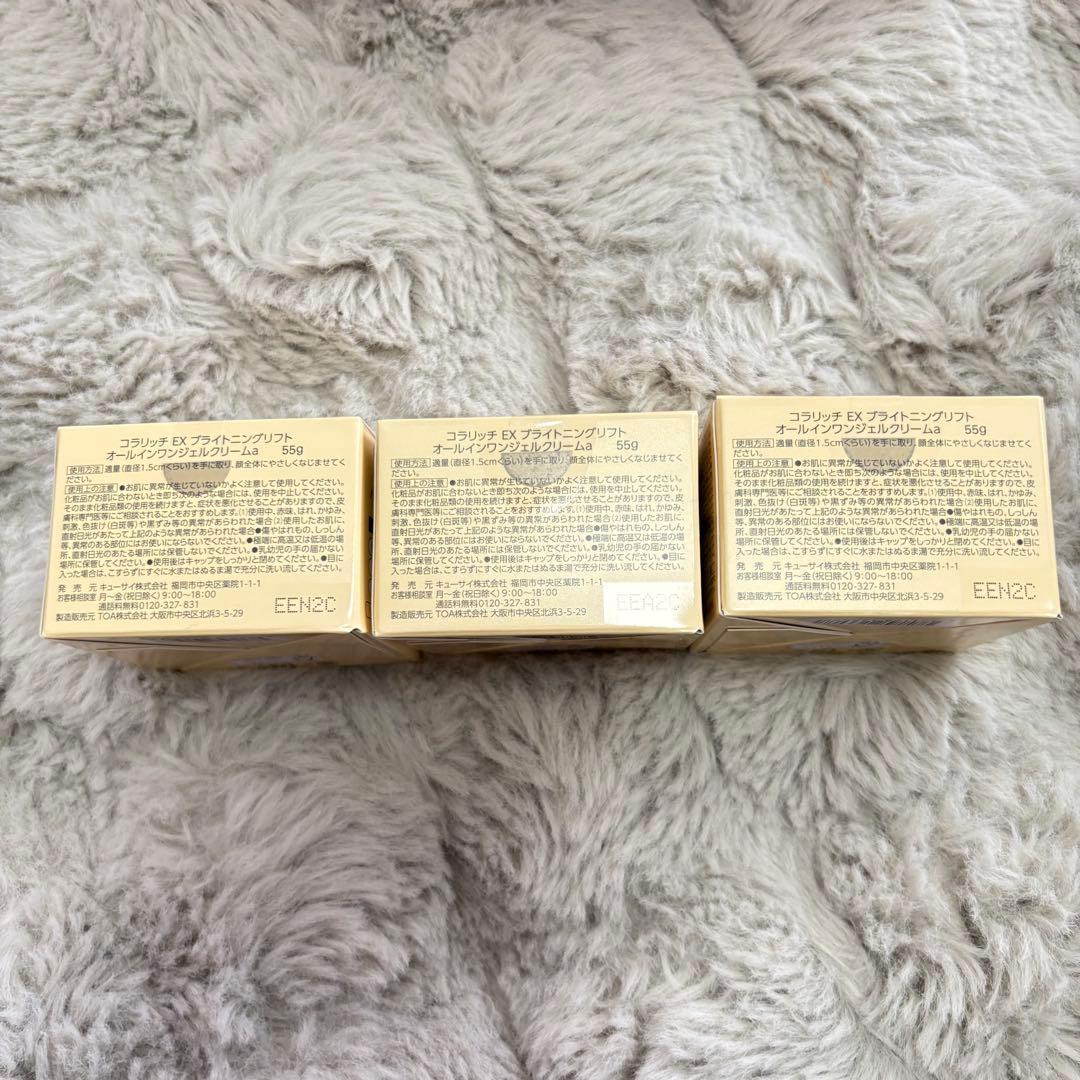 コラリッチ EX ブライトニングリフト
オールインワンジェルクリームa 55g
使用方法 適量(直径1.5cmぐらい)を手に取り、顔全体にやさしくなじませてください。
使用上の注意 ●お肌に異常が生じていないかよく注意して使用してください。
化粧品がお肌に合わないとき即ち次のような場合には、使用を中止してください。
そのまま化粧品類の使用を続けますと、症状を悪化させることがありますので、皮
膚科専門医等にご相談されることをおすすめします。(1)使用中、赤味、はれ、かゆみ、
刺激、色抜け(白斑等)や黒ずみ等の異常があらわれた場合(2)使用したお肌に、
直射日光があたって上記のような異常があらわれた場合●傷やはれもの、しっしん
等、異常のある部位にはお使いにならないでください。●極端に高温又は低温の場
所、直射日光のあたる場所には保管しないでください。●乳幼児の手の届かない
場所に保管してください。●使用後はキャップをしっかりと閉めてください。●目に
入った場合は、こすらずにすぐに水またはぬるま湯で充分に洗い流してください。
発売元 キューサイ株式会社 福岡市中央区薬院1-1-1
お客様相談室 月〜金(祝日除く) 9:00〜18:00
通話料無料0120-327-831
製造販売元 TOA株式会社 大阪市中央区北浜3-5-29
EEN2C
コラリッチ EX ブライトニングリフト
オールインワンジェルクリームa 55g
使用方法 適量(直径1.5cmぐらい)を手に取り、顔全体にやさしくなじませてください。
使用上の注意 ●お肌に異常が生じていないかよく注意して使用してください。
化粧品がお肌に合わないとき即ち次のような場合には、使用を中止してください。
そのまま化粧品類の使用を続けますと、症状を悪化させることがありますので、皮
膚科専門医等にご相談されることをおすすめします。(1)使用中、赤味、はれ、かゆみ、
刺激、色抜け(白斑等)や黒ずみ等の異常があらわれた場合(2)使用したお肌に、
直射日光があたって上記のような異常があらわれた場合●傷やはれもの、しっしん
等、異常のある部位にはお使いにならないでください。●極端に高温又は低温の場
所、直射日光のあたる場所には保管しないでください。●乳幼児の手の届かない
場所に保管してください。●使用後はキャップをしっかりと閉めてください。●目に
入った場合は、こすらずにすぐに水またはぬるま湯で充分に洗い流してください。
発売元 キューサイ株式会社 福岡市中央区薬院1-1-1
お客様相談室 月〜金(祝日除く) 9:00〜18:00
通話料無料0120-327-831
製造販売元 TOA株式会社 大阪市中央区北浜3-5-29
EEA2C
コラリッチ EX ブライトニングリフト
オールインワンジェルクリームa 55g
使用方法 適量(直径1.5cmぐらい)を手に取り、顔全体にやさしくなじませてください。
使用上の注意 ●お肌に異常が生じていないかよく注意して使用してください。
化粧品がお肌に合わないとき即ち次のような場合には、使用を中止してください。
そのまま化粧品類の使用を続けますと、症状を悪化させることがありますので、皮
膚科専門医等にご相談されることをおすすめします。(1)使用中、赤味、はれ、かゆみ、
刺激、色抜け(白斑等)や黒ずみ等の異常があらわれた場合(2)使用したお肌に、
直射日光があたって上記のような異常があらわれた場合●傷やはれもの、しっしん
等、異常のある部位にはお使いにならないでください。●極端に高温又は低温の場
所、直射日光のあたる場所には保管しないでください。●乳幼児の手の届かない
場所に保管してください。●使用後はキャップをしっかりと閉めてください。●目に
入った場合は、こすらずにすぐに水またはぬるま湯で充分に洗い流してください。
発売元 キューサイ株式会社 福岡市中央区薬院1-1-1
お客様相談室 月〜金(祝日除く) 9:00〜18:00
通話料無料0120-327-831
製造販売元 TOA株式会社 大阪市中央区北浜3-5-29
EEN2C